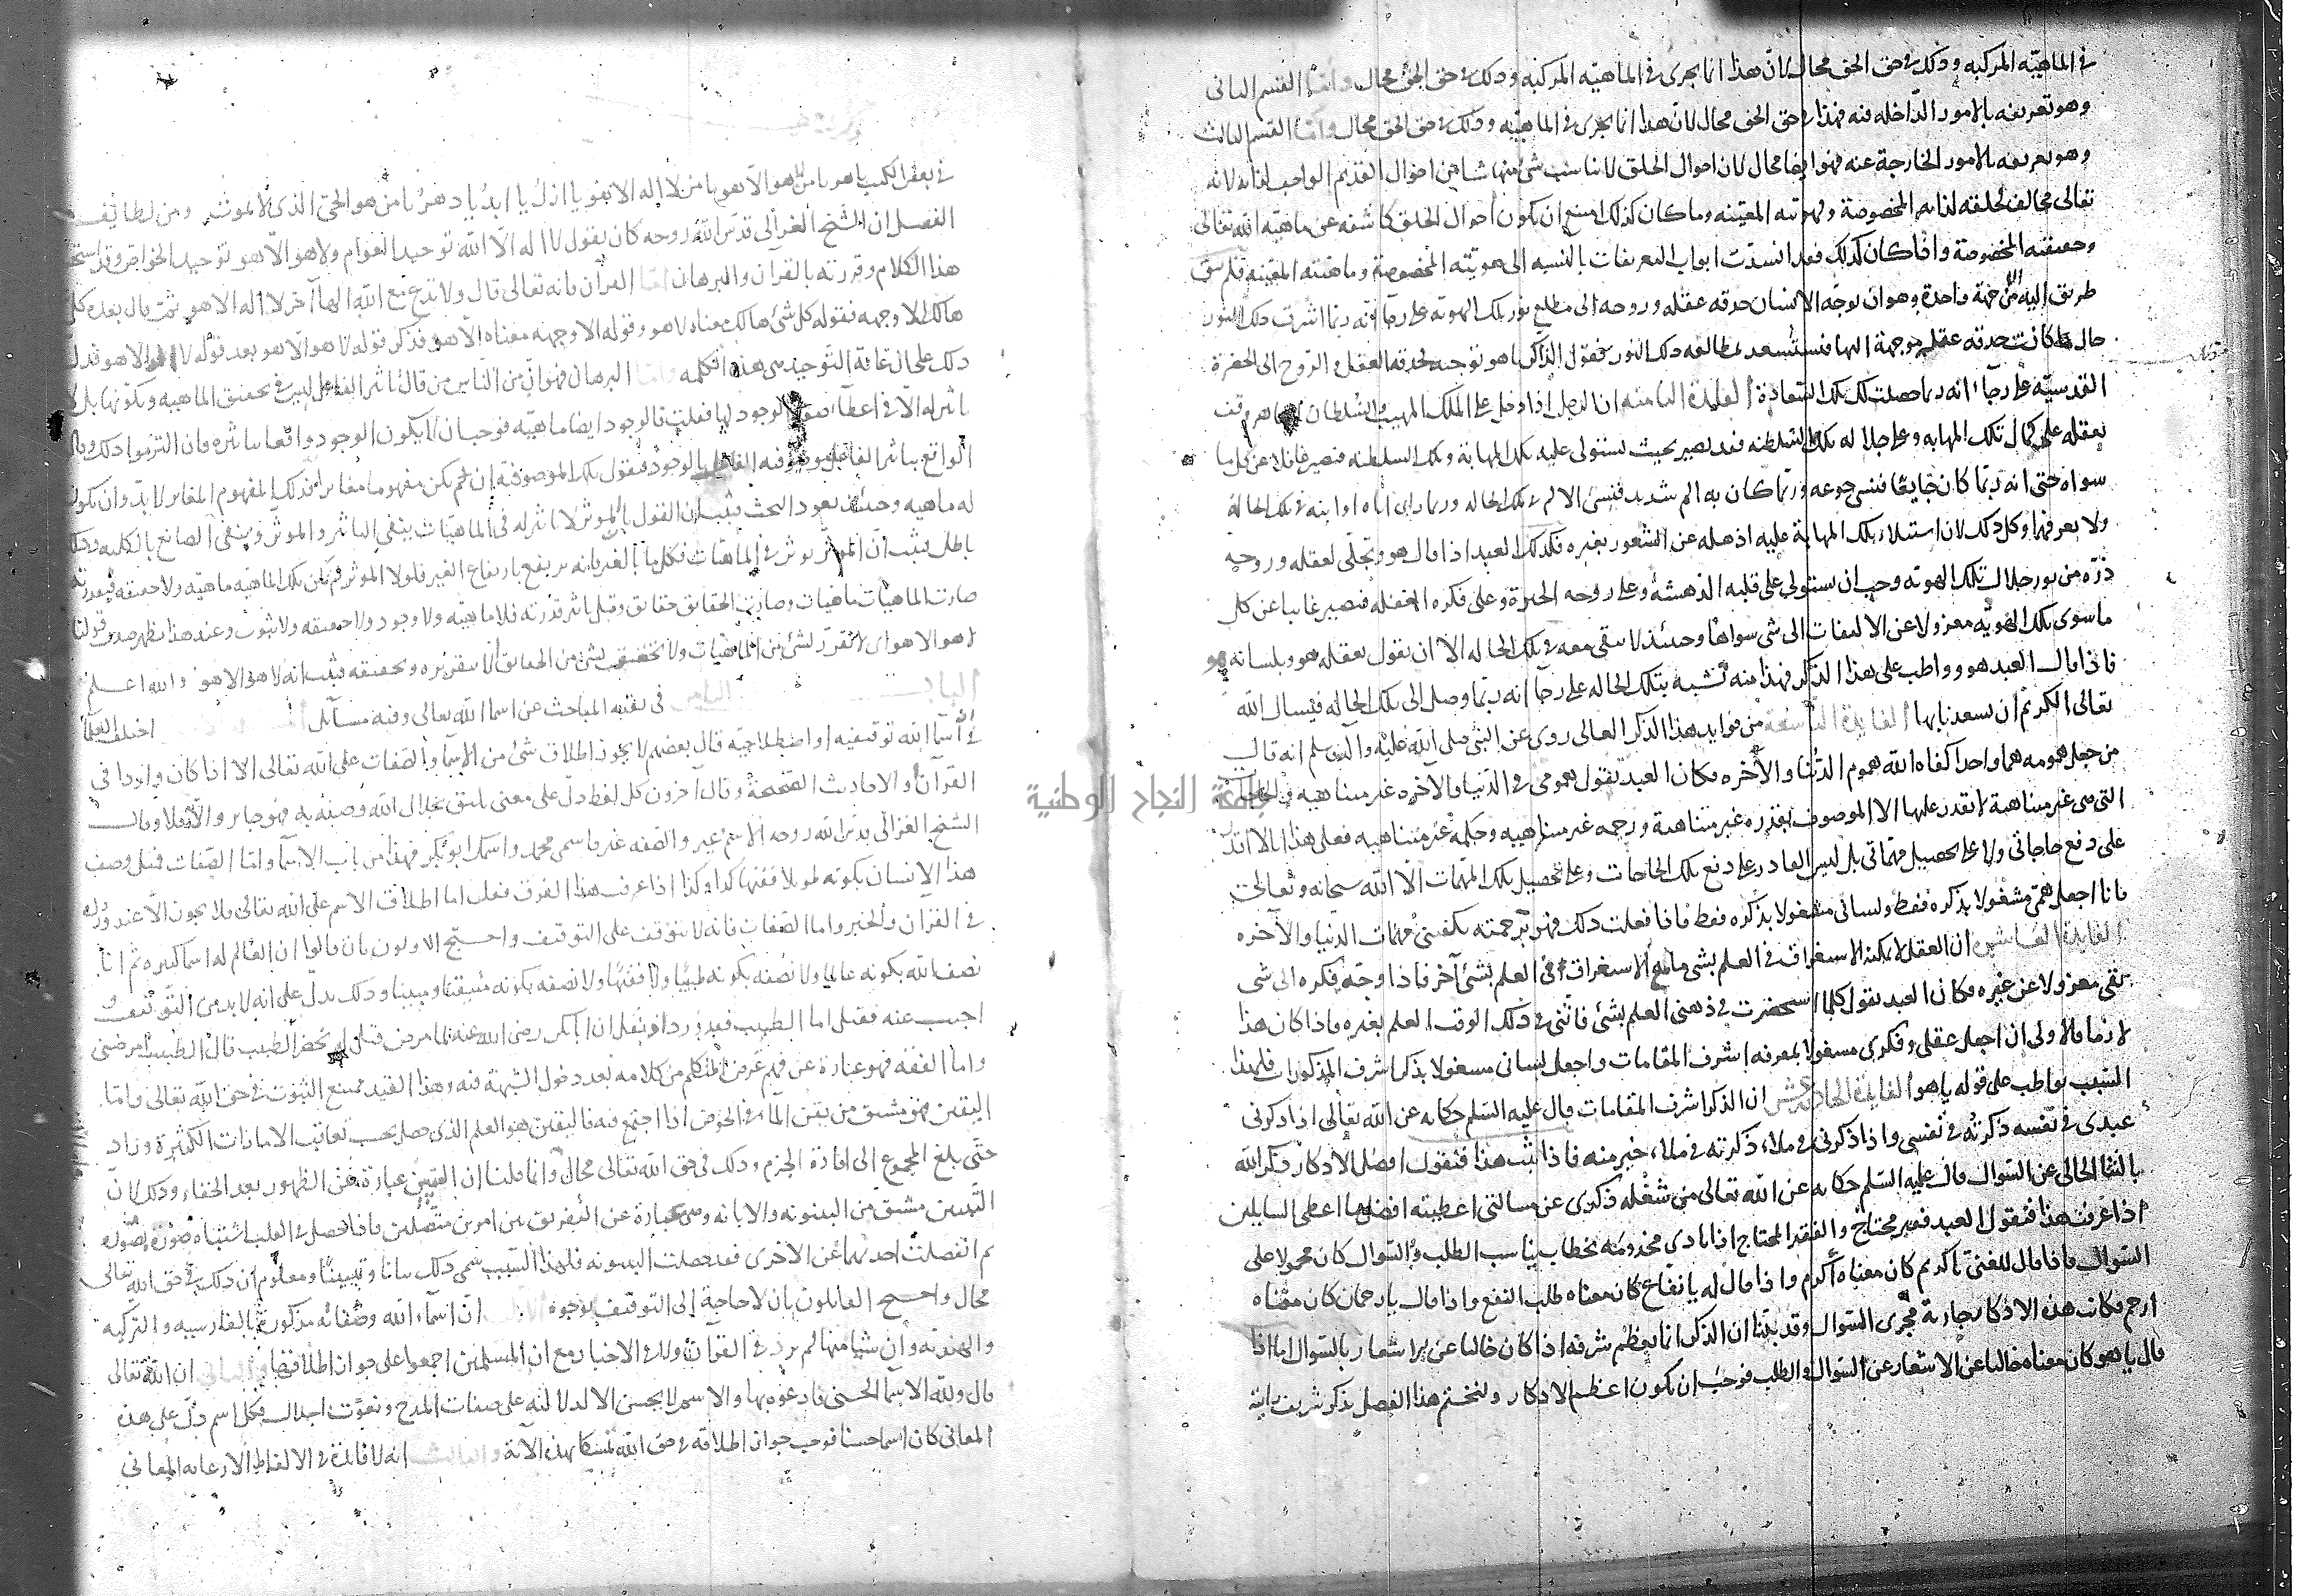 في الماهية المركبة وذلك في حق الحق محال لان هذا انما يجرى في الماهية المركبة وذلك في حق الحق محال واما القسم الثانى
وهو تعريفه بالامور الداخله فيه فهذا في حق الحق محال لان هذا انما يجرى في الماهيه وذلك في حق الحق محال واما القسم الثالث
وهو تعريفه بالامور الخارجة عنه فهو ايضا محال لان احوال الخلق لا يناسب شئ منها شيا من احوال القديم الواجب لذاته لانه
تعالى مخالف لخلقه لذاته المخصوصة وهويته المعينه وما كان كذلك امتنع ان يكون احوال الخلق كاشفه عن ماهية الله تعالى
وحقيقته المخصوصة واذا كان كذلك فقد انسدت ابواب التعريفات بالنسبه الى هويته المخصوصة وماهيته المعينه فلم يبق
طريق اليه الا من جهة واحدة وهو ان يوجه الانسان حدقه عقله وروحه الى مطلع نور تلك الهويه على رجا انه ربما اشرق ذلك النور
حال ما كانت حدقه عقله موجهة اليها فيستسعد بمطالعه ذلك النور فقول الذاكر يا هو توجيه لحدقه العقل والروح الى الحضرة
القدسية على رجاء انه ربما حصلت لك تلك السعادة الفايدة الثامنه ان الرجل اذا دخل على الملك المهيب والسلطان القاهر وقف
بعقله على كمال تلك المهابه وعلى جلاله تلك السلطنه فقد يصير بحيث تستولى عليه تلك المهابة وتلك السلطنه فيصير غافلا عن كل ما
سواه حتى انه ربما كان جايعا فينسى جوعه وربما كان به الم شديد فينسى الالم في تلك الحاله وربما راى اباه او ابنه في تلك الحالة
ولا يعرفهما وكل ذلك لان استيلاء تلك المهابة عليه اذهله عن الشعور بغيره فكذلك العبد اذا قال هو وتجلى لعقله وروحه
ذره من نور جلال تلك الهويه وجب ان يستولى على قلبه الدهشه وعلى روحه الحيرة وعلى فكره الغفله فيصير غايبا عن كل
ما سوى تلك الهوية معزولا عن الالتفات الى شى سواها وحينئذ لا يبقى معه في تلك الحاله الا ان يقول بعقله هو وبلسانه هو
فاذا قال العبد هو وواظب على هذا الذكر فهذا منه تشبه بتلك الحاله على رجا انه ربما وصل الى تلك الحاله فنسال الله
تعالى الكريم ان يسعدنا بها الفايدة التاسعة من فوايد هذا الذكر العالى روى عن النبى صلى الله عليه واله وسلم انه قال
من جعل همومه هما واحدا كفاه الله هموم الدنيا والآخره فكان العبد يقول همومى في الدنيا والآخره غير متناهيه والحاجات
التى هى غير متناهية لا يقدر عليها الا الموصوف بقدره غير متناهية ورحمه غير متناهيه وحكمة غير متناهيه فعلى هذا انا لا اقدر
على دفع حاجاتى ولا على تحصيل مهماتى بل ليس القادر على دفع تلك الحاجات وعلى تحصيل تلك المهمات الا الله سبحانه وتعالى
فانا اجعل همى مشغولا بذكره فقط ولسانى مشغولا بذكره فقط فاذا فعلت ذلك فهو برحمته يكفينى مهمات الدنيا والآخره
الفايدة العاشرة ان العقل لا يمكنه الاستغراق في العلم بشى مانع الاستغراق في العلم بشئ آخر فاذا وجه فكره الى شى
بقى معزولا عن غيره فكان العبد يقول كلما استحضرت في ذهنى العلم بشئ فاتنى في ذلك الوقت العلم بغيره فاذا كان هذا
لازما فالاولى ان اجعل عقلى وفكرى مشغولا بمعرفه اشرف المقامات واجعل لسانى مشغولا بذكر اشرف المذكورات فلهذا
السبب يواظب على قوله يا هو الفايدة الحادية عشر ان الذكر اشرف المقامات قال عليه السلم حكايه عن الله تعالى اذا ذكرنى
عبدى في نفسه ذكرته في نفسى واذا ذكرنى في ملاء ذكرته في ملاء خير منه فاذا ثبت هذا فنقول افضل الاذكار ذكر الله
بالثنا الخالى عن السوال قال عليه السلم حكايه عن الله تعالى من شغله ذكرى عن مسالتى اعطيته افضل ما اعطى السايلين
اذا عرفت هذا فنقول العبد فقير محتاج والفقير المحتاج اذا نادى مخدومه بخطاب يناسب الطلب والسوال كان محمولا على
السوال فاذا قال للغنى يا كريم كان معناه اكرم واذا قال له يا نفاع كان معناه طلب النفع واذا قال يا رحمان كان معناه
ارحم فكانت هذه الاذكار جارية مجرى السوال وقد بينا ان الذكر انما يعظم شرفه اذا كان خاليا عن الاشعار بالسوال اما اذا
قال يا هو كان معناه خاليا عن الاشعار عن السوال والطلب فوجب ان يكون اعظم الاذكار ولنختم هذا الفصل بذكر شريف رايته
في بعض الكتب يا هو يا من لا هو الا هو يا من لا اله الا هو يا ازل يا ابد يا دهر يا من هو الحى الذى لا يموت ومن لطائف
الفصل ان الشيخ الغزالى قدس الله روحه كان يقول لا اله الا الله توحيد العوام ولا هو الا هو توحيد الخواص وقد
هذا الكلام وقررته بالقرآن والبرهان اما القرآن فانه تعالى قال ولا تدع مع الله الها آخر لا اله الا هو ثم قال بعده كل
هالك الا وجهه فقوله كل شئ هالك معناه لا هو وقوله الا وجهه معناه الا هو فذكر قوله لا هو الا هو بعد قوله لا اله الا هو فدل
ذلك على ان غاية التوحيد هى هذه الكلمه واما البرهان فهو ان من الناس من قال تاثير الفاعل ليس في تحقيق الماهيه وتكوينها بل لا
تاثير له الا في اعطآ صفة الوجود لها فقلت فالوجود ايضا ماهيه فوجب ان لا يكون الوجود واقعا بتاثيره فان التزموا ذلك وقالوا
الواقع بتاثير الفاعل موصوفيه الماهيه بالوجود فنقول تلك الموصوفيه ان لم يكن مفهوما مغايرا فذلك المفهوم المغاير لا بد وان يكون
له ماهيه وحينئذ يعود البحث فثبت ان القول بان الموثر لا تاثير له في الماهيات ينفى التاثير والموثر وينفى الصانع بالكليه وذلك
باطل فثبت ان الموثر يوثر في الماهيات فكل ما بالغير فانه يرتفع بارتفاع الغير فلولا الموثر لم تكن تلك الماهيه ماهيه ولا حقيقه فبقدرته
صارت الماهيات ماهيات وصارت الحقايق حقايق وقبل تاثير قدرته فلا ماهيه ولا وجود ولا حقيقه ولا ثبوت وعند هذا يظهر صدق قولنا
لا هو الا هو اى لا تقرر لشئ من الماهيات ولا تخصيص لشئ من الحقايق الا بتقريره وتحقيقه فثبت انه لا هو الا هو والله اعلم
الباب الثامن في بقيه المباحث عن اسما الله تعالى وفيه مسآئل اختلف العلمآ
في اسمآ الله توقيفيه او اصطلاحيه قال بعضهم لا يجوز اطلاق شئ من الاسمآ والصفات على الله تعالى الا اذا كان واردا في
القرآن والاحاديث الصحيحة وقال آخرون كل لفظ دل على معنى يليق بجلال الله وصفته به فهو جايز والا فلا وقال
الشيخ الغزالى قدس الله روحه الاسم غير والصفه غير فاسمى محمد واسمك ابو بكر فهذا من باب الاسمآ واما الصفات فمثل وصف
هذا الانسان بكونه طويلا فقيها كذا وكذا اذا عرفت هذا الفرق فعلى اما اطلاق الاسم على الله تعالى فلا يجوز الا عند وروده
في القرآن والخبر واما الصفات فانه لا يتوقف على التوقيف واحتج الاولون بان قالوا ان العالم له اسما كثيره ثم انا
نصف الله بكونه عالما ولا نصفه بكونه طبيبا ولا فقيها ولا نصفه بكونه متيقنا ومبينا وذلك يدل على انه لا بد من التوقيف و
اجيب عنه فقيل اما الطبيب فقد ورد اذ نقل ان ابا بكر رضى الله عنه لما مرض قيل له نحضر الطبيب قال الطبيب امرضنى
واما الفقه فهو عبارة عن فهم غرض المتكلم من كلامه بعد دخول الشبهة فيه وهذا القيد ممتنع الثبوت في حق الله تعالى واما
اليقين فهو مشتق من يقن المآء في الحوض اذا اجتمع فيه فاليقين هو العلم الذى حصل بسبب تعاقب الامارات الكثيرة وزاد
حتى بلغ المجموع الى افادة الجزم وذلك في حق الله تعالى محال وانما قلنا ان التبيين عبارة عن الظهور بعد الخفاء وذلك لان
التبيين مشتق من البينونه والابانه وهى عبارة عن التفريق بين امرين متصلين فاذا حصل في القلب اشتباه صورة بصوره
ثم انفصلت احديهما عن الاخرى فقد حصلت البينونه فلهذا السبب سمى ذلك بيانا وتبيينا ومعلوم ان ذلك في حق الله تعالى
محال واحتج القائلون بان لا حاجة الى التوقيف بوجوه الاول ان اسماء الله وصفاته مذكورة بالفارسيه والتركيه
والهنديه وان شيا منها لم يرد في القرآن ولا في الاخبار مع ان المسلمين اجمعوا على جواز اطلاقها الثانى ان الله تعالى
قال ولله الاسمآ الحسنى فادعوه بها والاسم لا يحسن الا لدلالته على صفات المدح ونعوت الجلال فكل اسم دل على هذه
المعانى كان اسما حسنا فوجب جواز اطلاقه في حق الله تمسكا بهذه الآية والثالث انه لا فائدة في الالفاظ الا رعايه المعانى
جامعة النجاح الوطنية